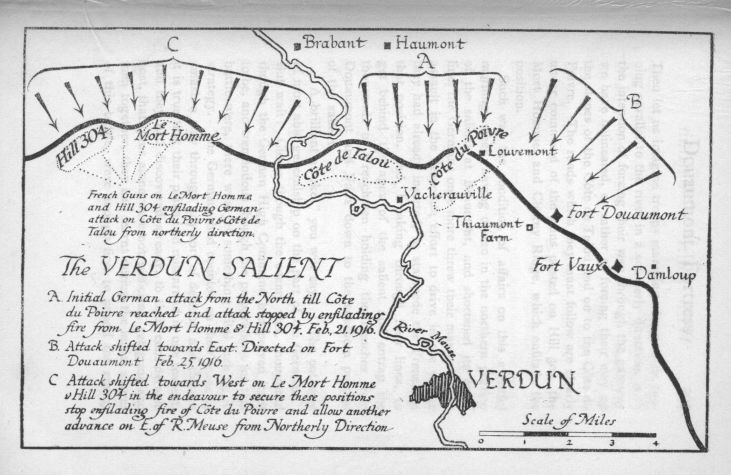 C
Brabant
Haumont
A
B
Hill 304
Le
Mort Homme
Côte de Talou
Côte du Poivre
Louvemont
Vacherauville
French Guns on Le Mort Homme
and Hill 304 enfilading German
attack on Côte du Poivre & Côte de
Talou from northerly direction.
Thiaumont
Farm
Fort Douaumont
Fort Vaux
Damloup
The VERDUN SALIENT
A Initial German attack from the North till Côte
du Poivre reached and attack stopped by enfilading
fire from Le Mort Homme & Hill 304. Feb. 21. 1916.
B Attack shifted towards East. Directed on Fort
Douaumont Feb. 25. 1916.
C Attack shifted towards West on Le Mort Homme
& Hill 304 in the endeavour to secure these positions
stop enfilading fire of Côte du Poivre and allow another
advance on E. of R. Meuse from Northerly Direction
River Meuse
VERDUN
Scale of Miles
0 1 2 3 4